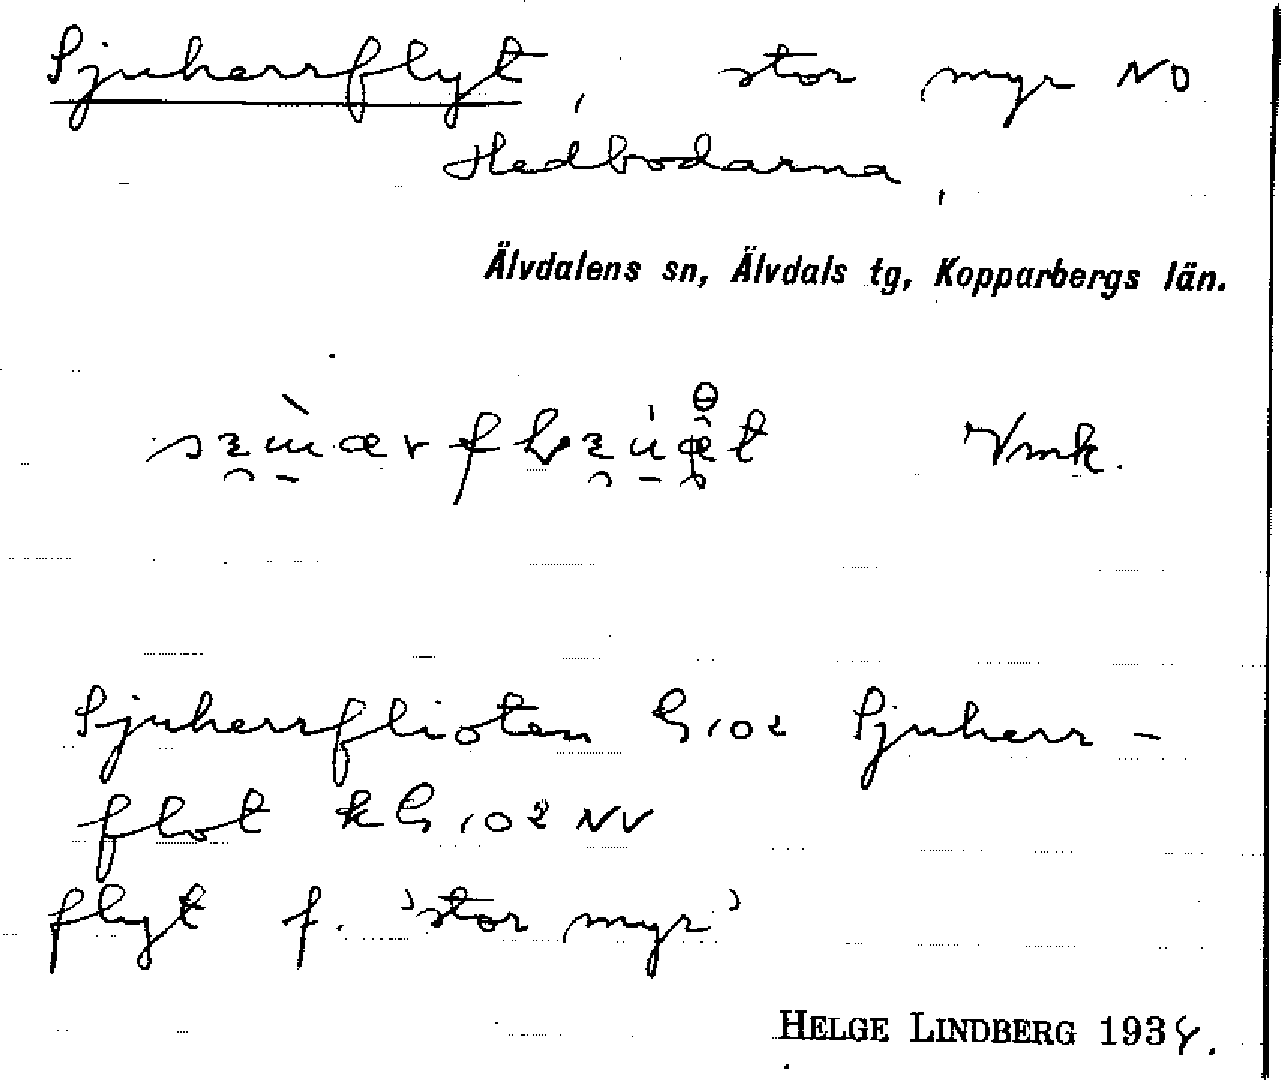 Sjuherrflyt, stor myr NO
Hedbodarna,
Älvdalens sn, Älvdals tg, Kopparbergs län.
Vmk.
Sjuherrflioten G 102 Sjuherr-
flot kG 102 NV
flyt f. 'stor myr'
HELGE LINDBERG 1934.